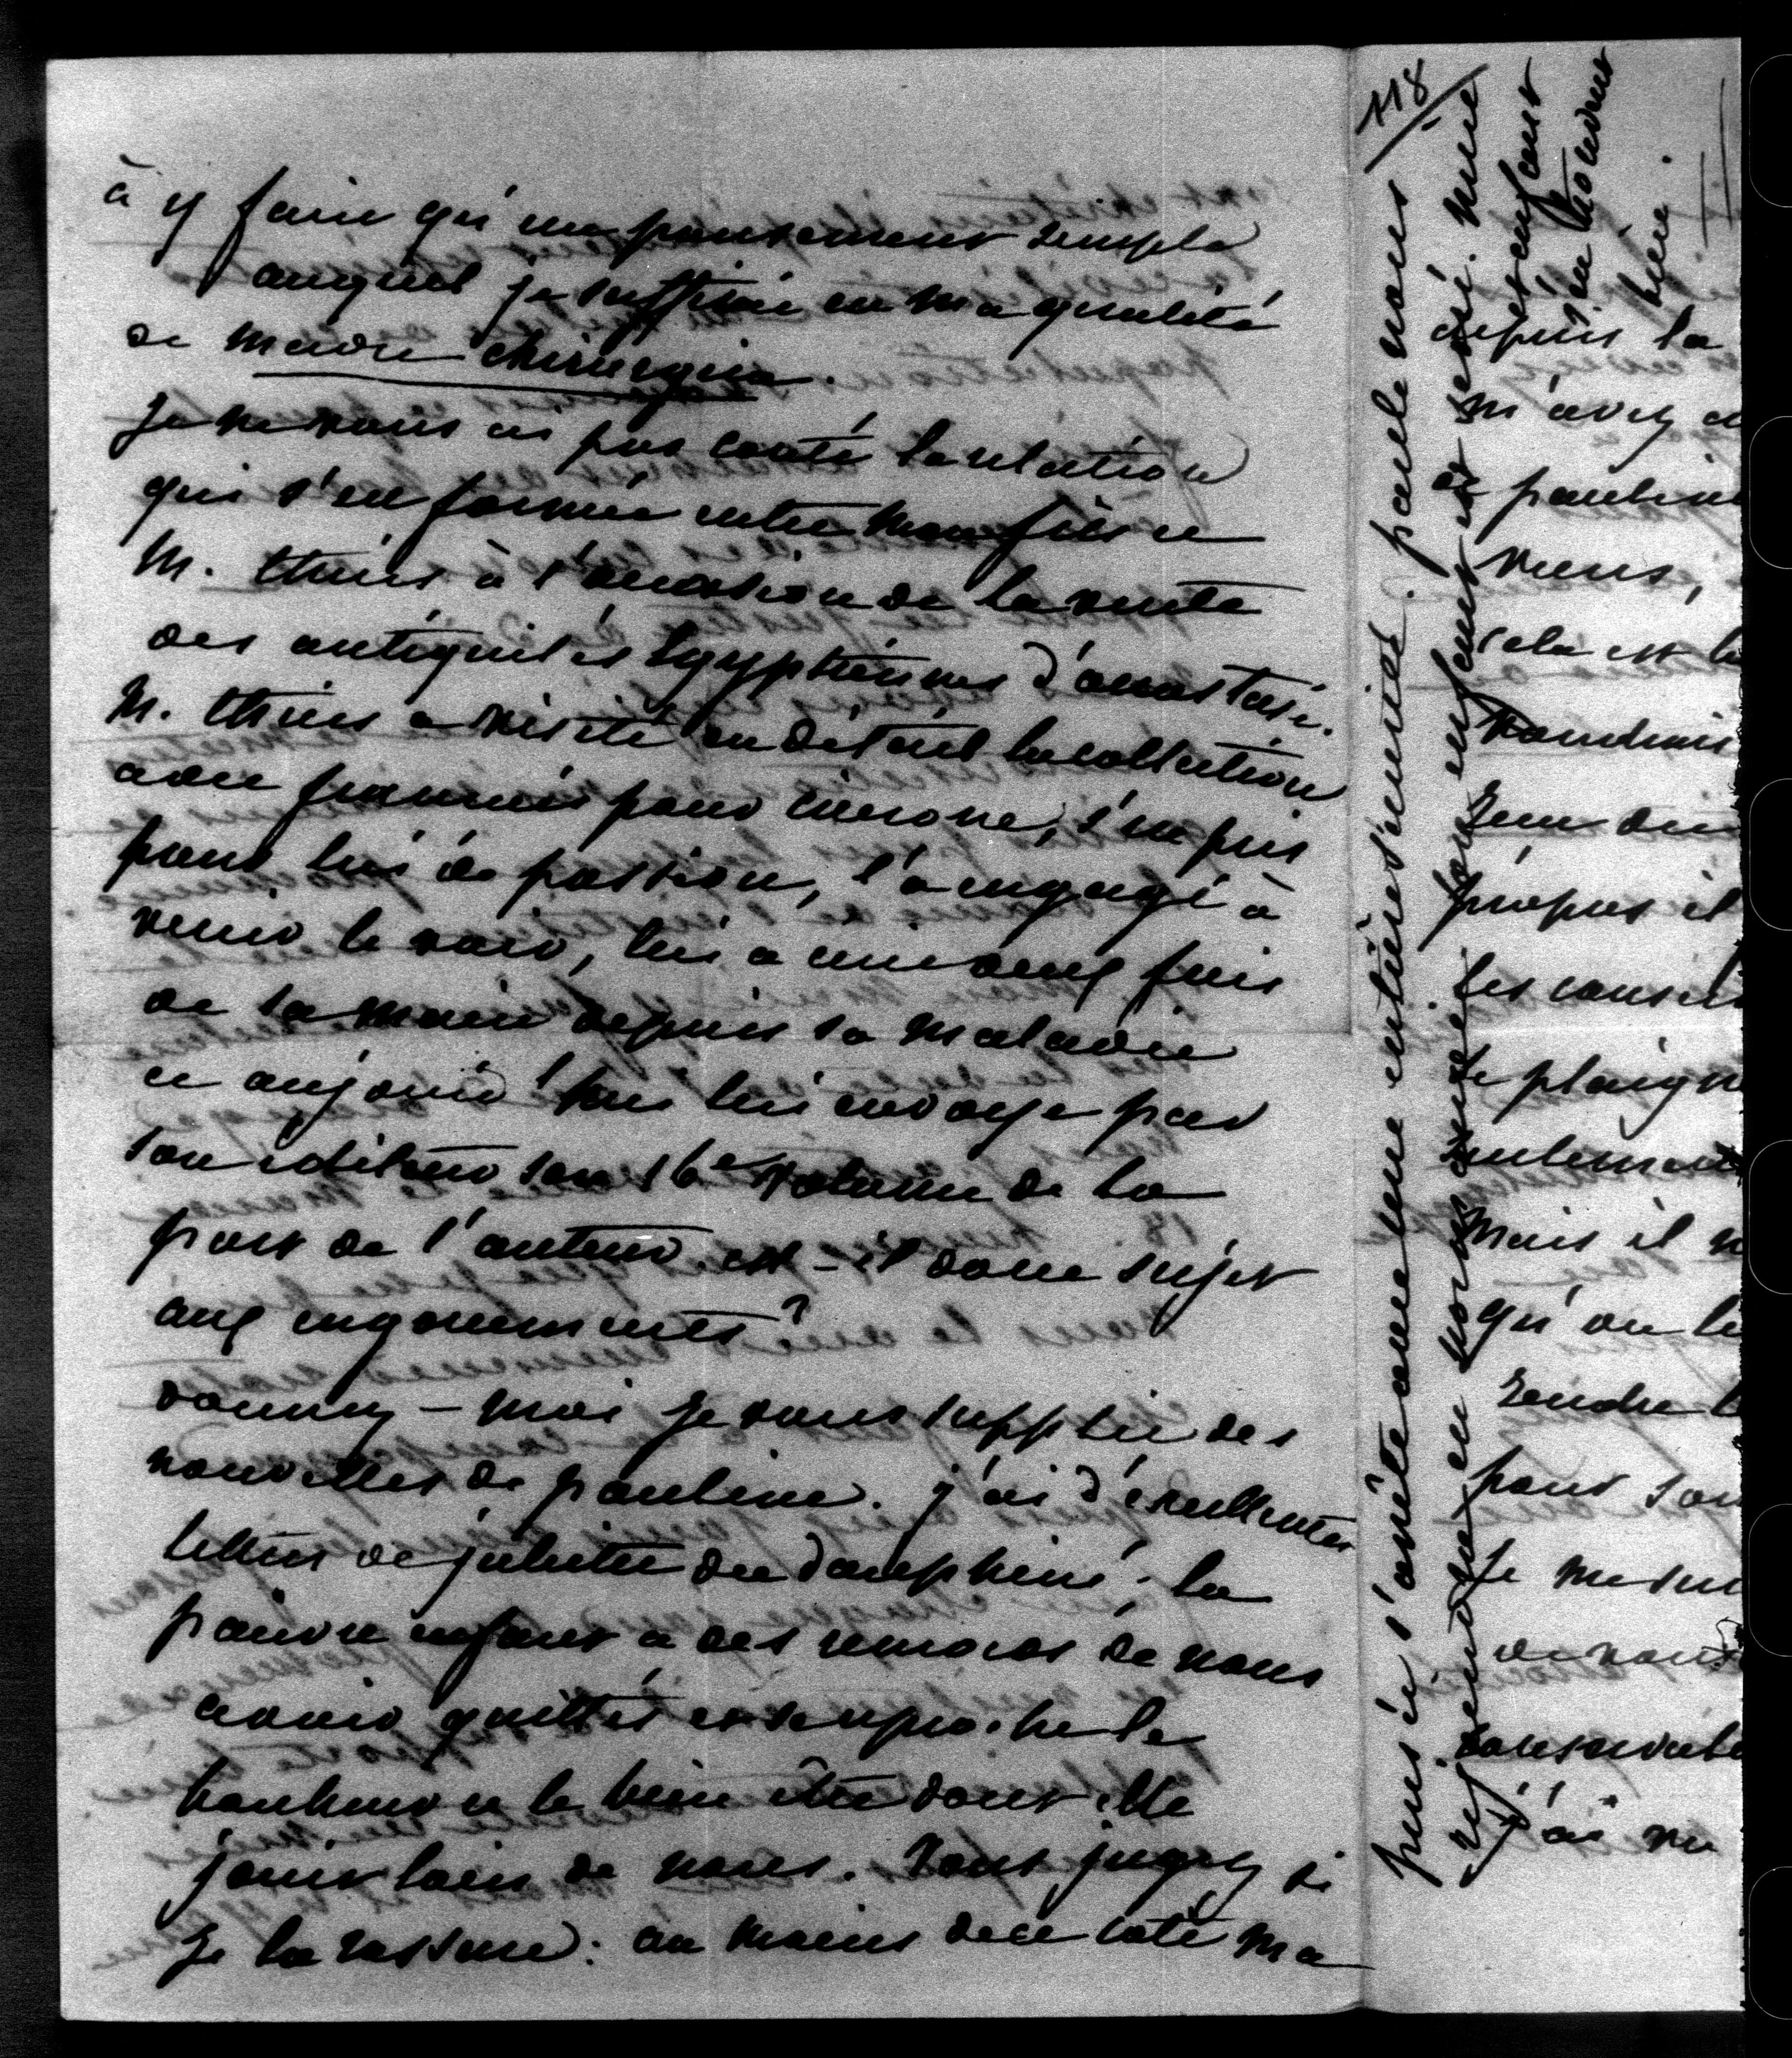 à y faire qu'un pansement simple
auquel je suffirai en ma qualité
de mадre chirurgien.
je ne vous ai pas conté la relation
qui s'est formée entre mon fils et
M. thiers à l'occasion de la vente
des antiquités Egyptiennes d'anastasi.
M. thiers a visité en détail la collection
avec françois pour cicerone, s'est pris
pour lui de passion, l'a engagé à
venir le voir, lui a écrit deux fois
de sa main depuis sa maladie
et aujourd'hui lui envoye par
son éditeur son 16e volume de la
part de l'auteur. est-il donc sujet
aux engouements?
donnez-moi je vous supplie des
nouvelles de pauline. j'ai d'excellentes
lettres de juliette du dauphiné. la
pauvre enfant a des remords de nous
avoir quittés et se reproche le
bonheur et le bien être dont elle
jouit loin de nous. Vous jugez si
je la rassure: au moins de ce coté ma
118
pensée s'arrête avec une entière sécurité. paule nous
reviendra en normandie. son enfant est sevré.
depuis la
m'avez
de pauline
viens,
cela est
voudrais
propos il
les conseils
plaign
seulement
mais il n
qu'on le
rendre
pour son
je me
de nous
j'ai vu